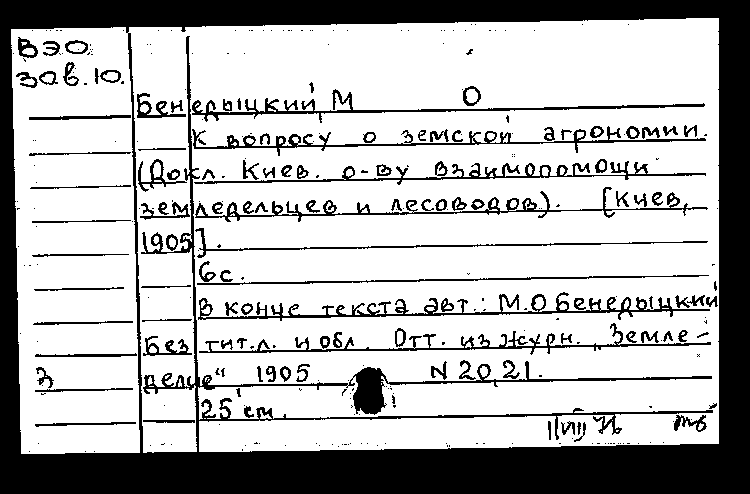 ВЭО
зов.10.
Бенедыцкий, М О
К вопросу о земской агрономии.
(Докл. Киев. о-ву взаимопомощи
земледельцев и лесоводов). [Киев,
1905].
6с.
В конце текста авт.: М.О Бенедыцкий
Без тит.л. и обл. Отт. из журн. „Земле-
3 делие" 1905, N 20,21.
25 см.